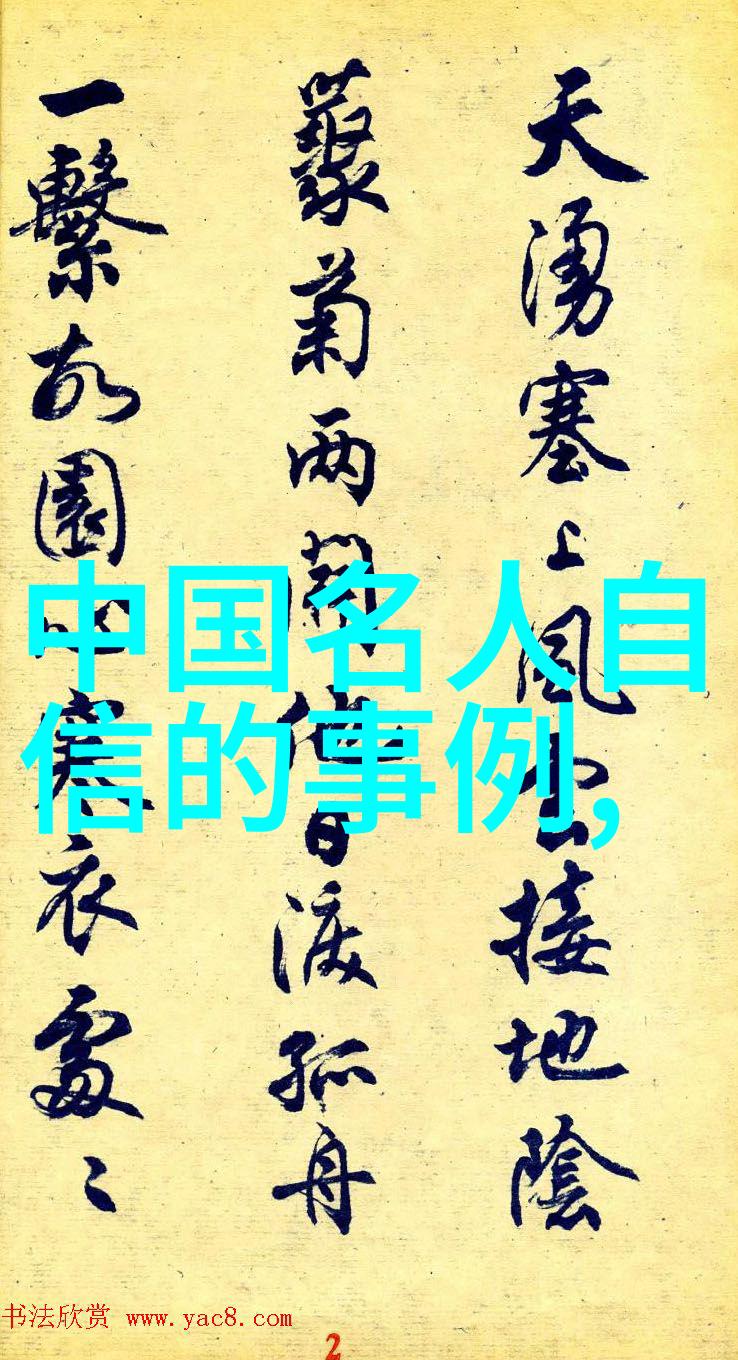 天湧塞上風雲接地陰
叢菊两開他日淚孤舟
一繫故園心寒衣處〻
中国名人自
信的事例,
书法欣赏 www.yac8.com
2